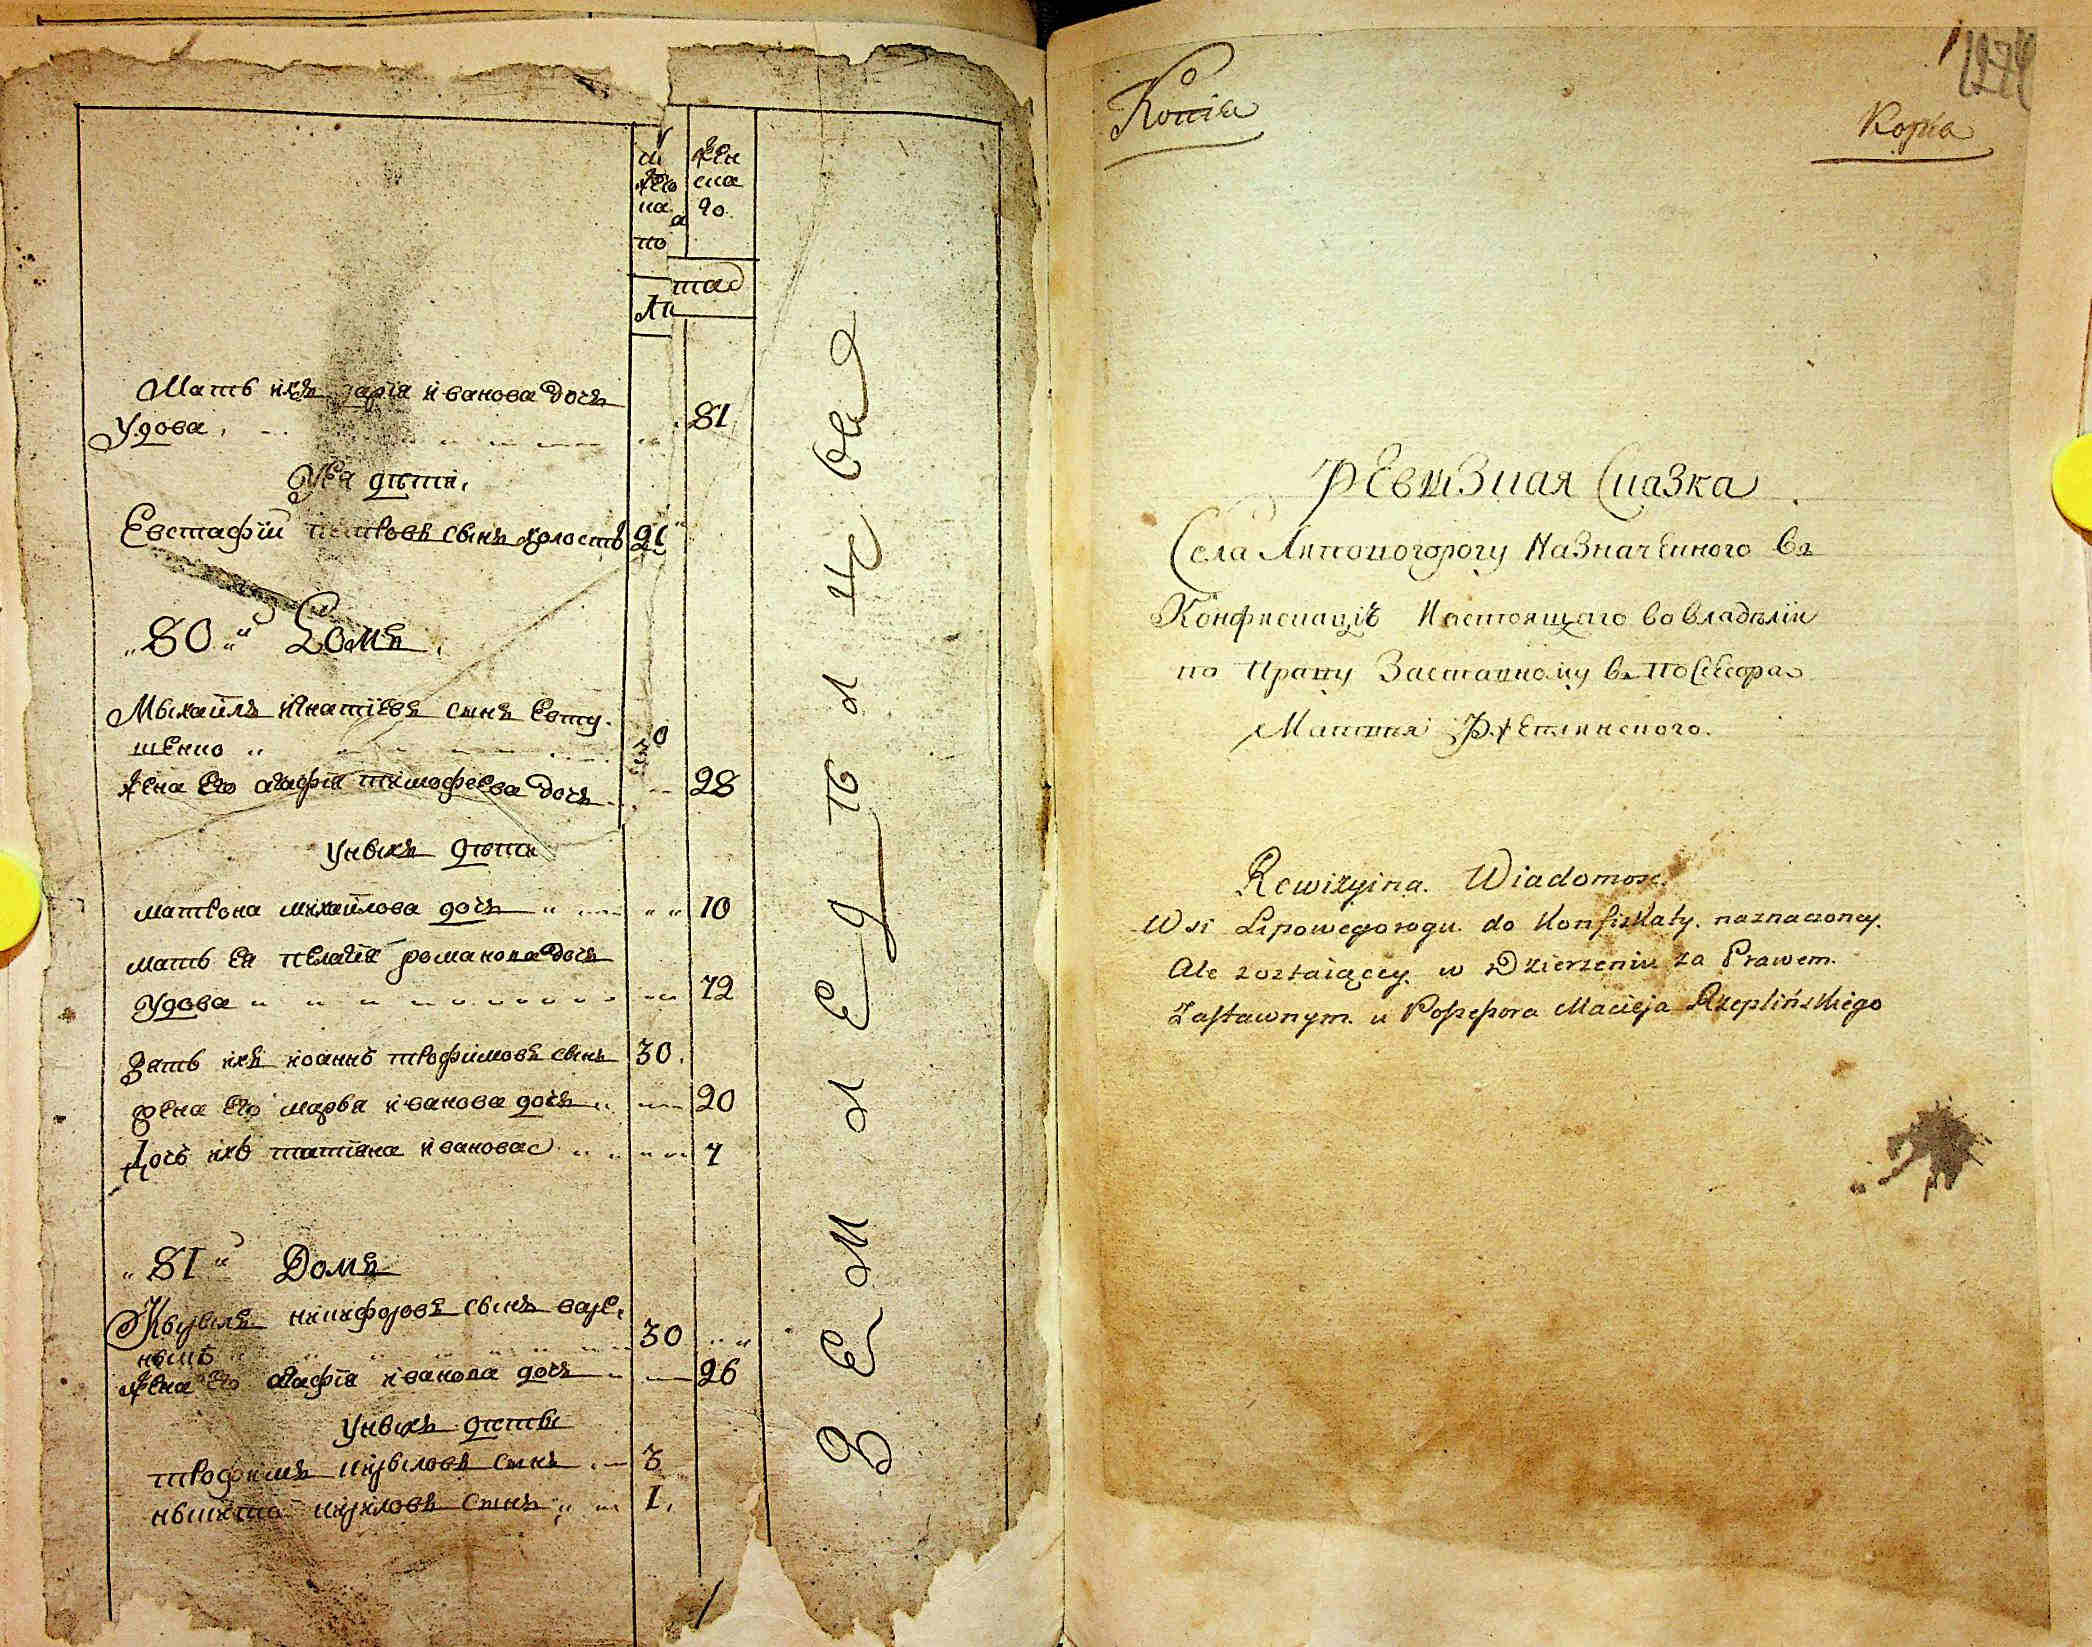 жен
ска
го
тао
Мать ихъ марїя иванова дочъ
Удова 81
Уея дѣти.
Евстафїй петровъ сынъ холостъ 21
"80" Домъ.
Мыхайлъ игнатїевъ сынъ Евту-
шенко 30
Жена его агафїя тимофеева дочъ 28
Унихъ дѣти
матрона михайлова дочъ 10
мать ея пелагїя романова дочъ
Удова 72
Зять ихъ иоаннъ трофимовъ сынъ 30.
Жена его марфа иванова дочъ 20
Дочъ ихъ татїана иванова 4
"81" Домъ
никифоровъ сынъ
30
Жена его агафїя иванова дочъ 26
Унихъ дѣти
трофимъ сынъ 3
никита сынъ 1.
З Е М Л Е Д Ѣ Л Ц Ы
1274
Копїя
Kopia
Ревизная Сказка
Села Липоногорогу Назначенного въ
Конфискацїю Настоящаго во владѣнїи
по Праву Заставному въ Посесора
Матвия Ржеплинского.
Rewizyina. Wiadomosc.
Wsi Lipowegorogu do Konfiskaty. naznaczoney.
Ale zostaiącey. w Dzierzeniu za Prawem.
Zastawnym. u Possessora Macieja Rzeplińskiego